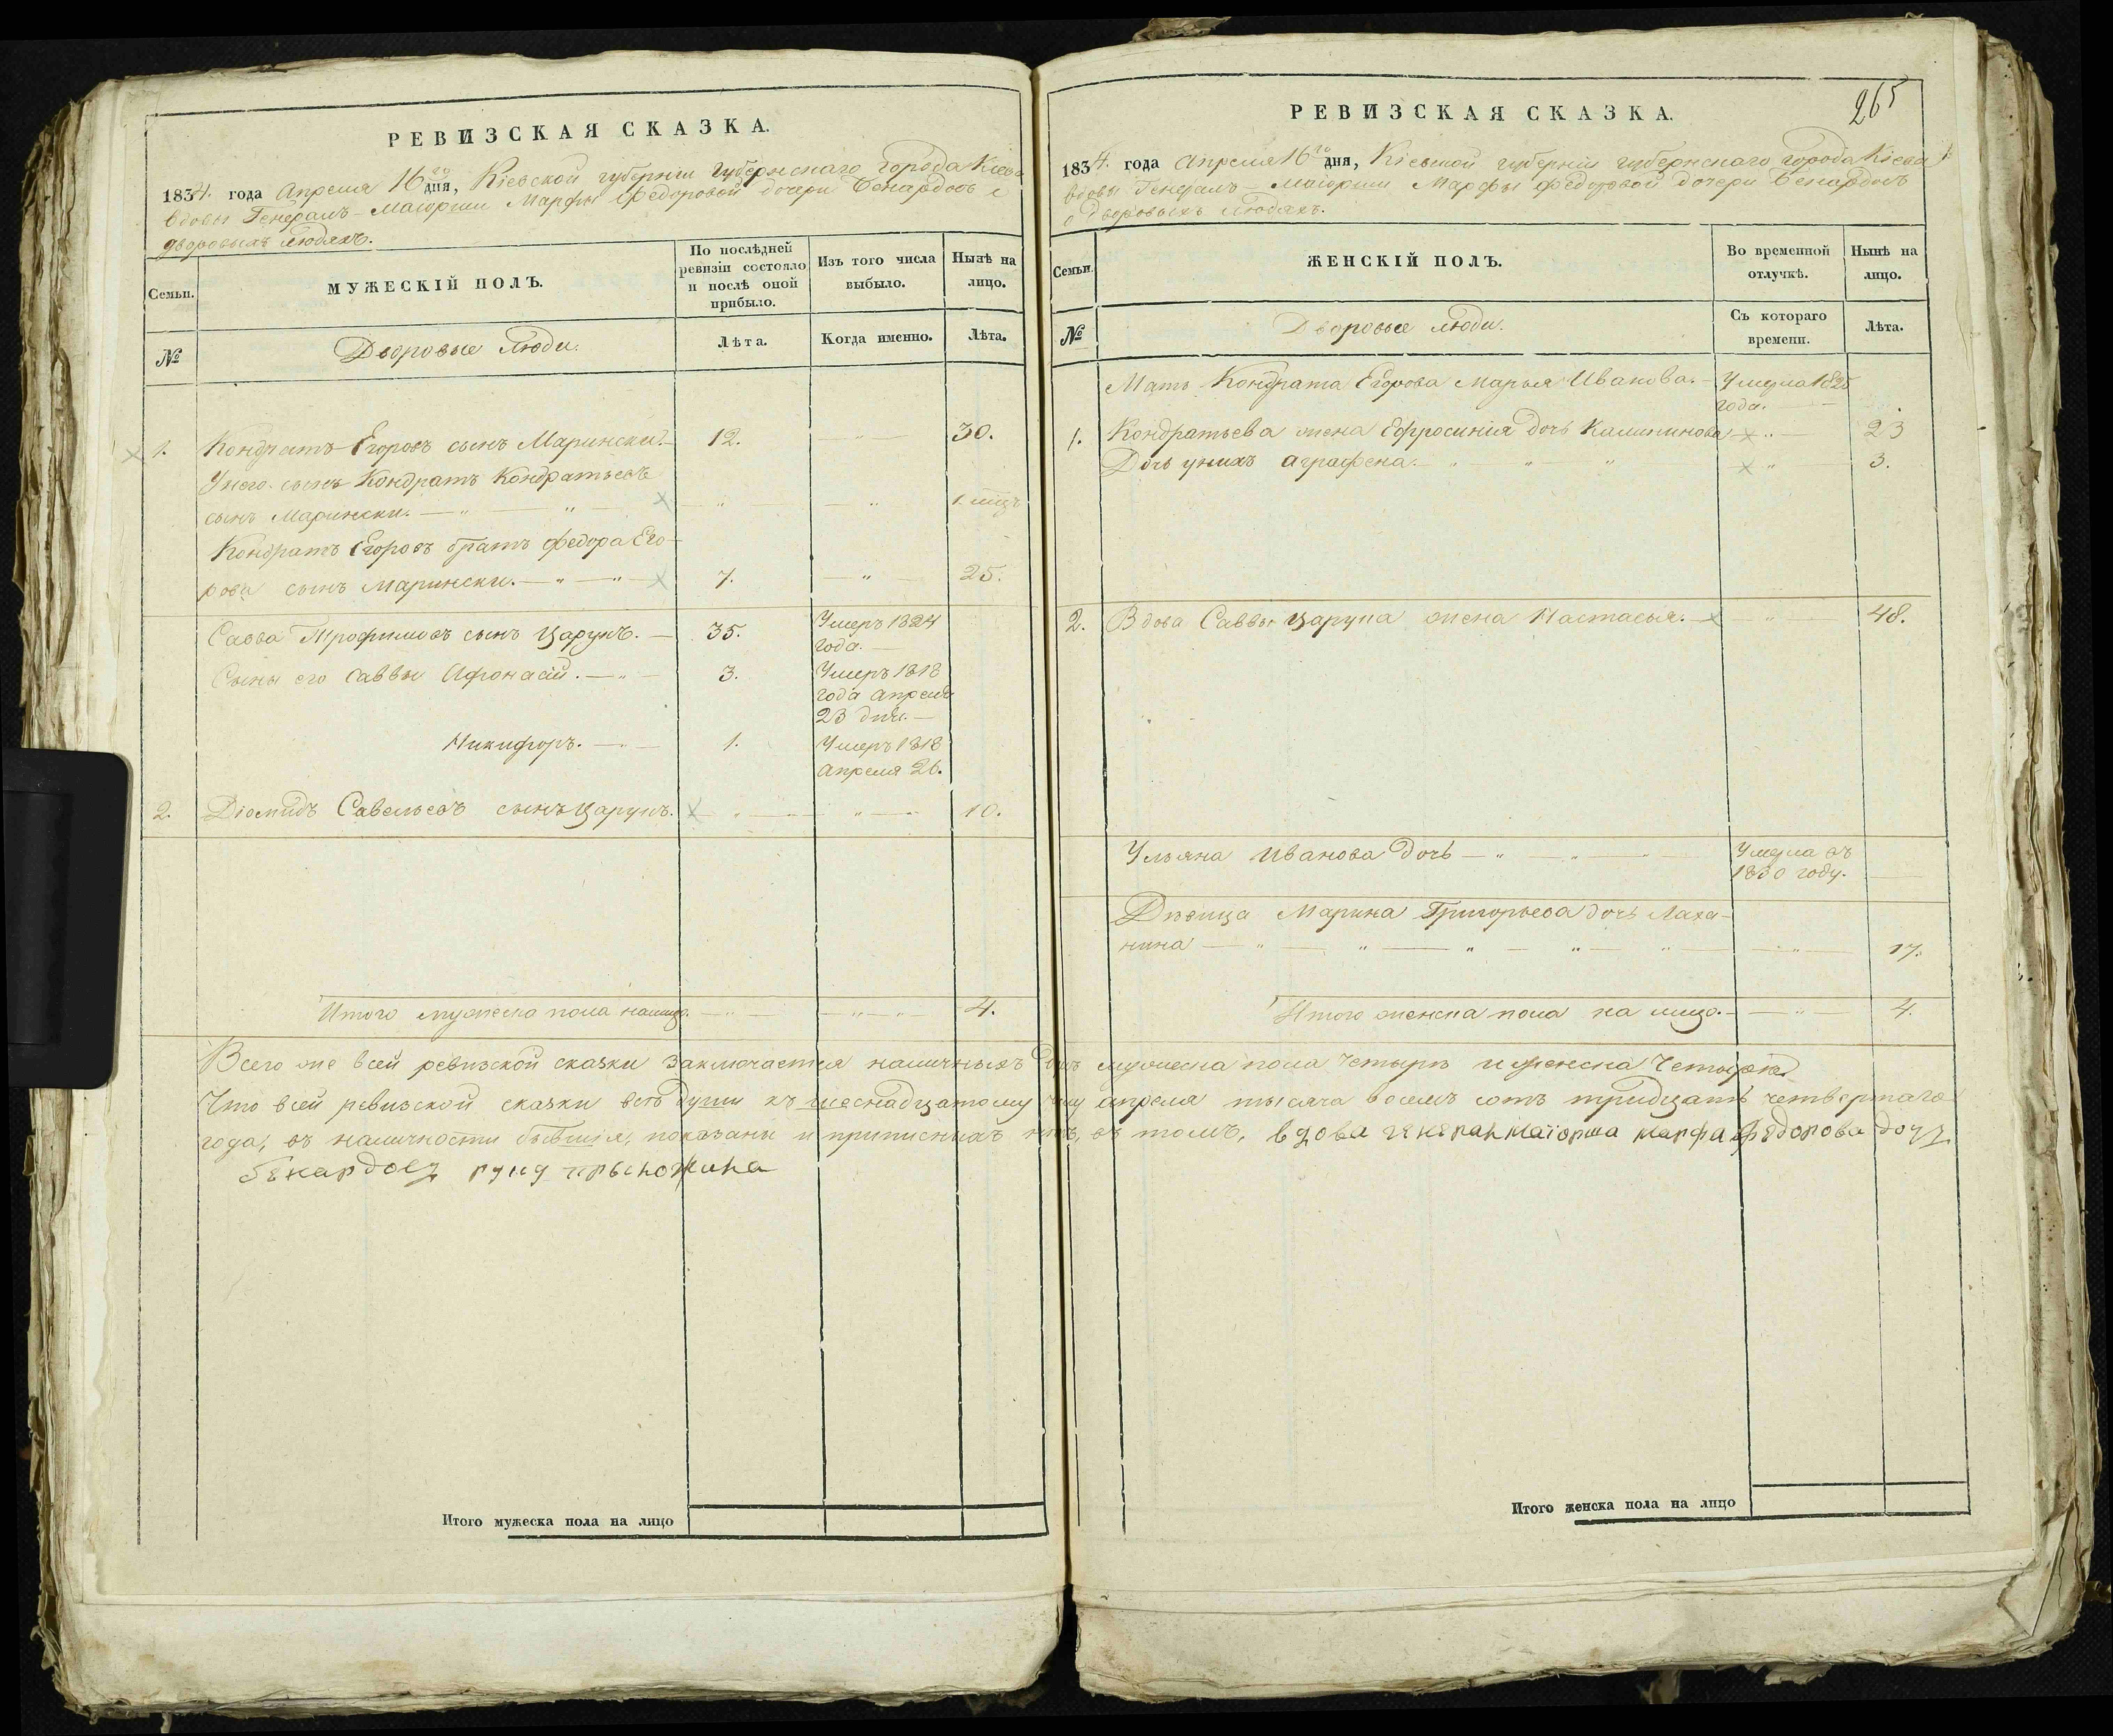 РЕВИЗСКАЯ СКАЗКА.
1834. года Апреля 16го дня, Кіевской губерніи губернскаго города Кіева
вдовы Генералъ-Маіорши Марфы Федоровой дочери Бенардовъ о
дворовыхъ людяхъ.
Семьи.
МУЖЕСКІЙ ПОЛЪ.
По послѣдней ревизіи состояло и послѣ оной прибыло.
Изъ того числа выбыло.
Нынѣ на лицо.
№
Дворовые люди.
Лѣта.
Когда именно.
Лѣта.
1. Кондратъ Егоровъ сынъ Марински. 12. 30.
У него сынъ Кондратъ Кондратьевъ
сынъ Марински. 1. мцъ
Кондратъ Егоровъ братъ Федора Его-
рова сынъ Марински. 7. 25.
Савва Трофимовъ сынъ Царукъ. 35. Умеръ 1824
года.
Сыны его Саввы Афонасій. 3. Умеръ 1818
года апреля
23 дня.
Никифоръ. 1. Умеръ 1818
апреля 26.
2. Діомидъ Савельевъ сынъ Царукъ. 10.
Итого мужеска пола налицо. 4.
Всего же всей ревизской сказки заключается наличныхъ душъ мужеска пола четыре и женска четыре.
Что всей ревизской сказки всѣ души къ шеснадцатому числу апреля тысяча восемъ сотъ тридцать четвертаго
года, въ наличности бывшія, показаны и приписныхъ нѣтъ, въ томъ, вдова генералмаіорша марфа федорова дочъ
бенардовъ руку приложила
Итого мужеска пола на лицо
РЕВИЗСКАЯ СКАЗКА.
265
1834. года Апреля 16го дня, Кіевской губерніи губернскаго города Кіева
вдовы Генералъ-Маіорши Марфы Федоровой дочери Бенардовъ
о дворовыхъ людяхъ.
Семьи.
ЖЕНСКІЙ ПОЛЪ.
Во временной отлучкѣ.
Нынѣ на лицо.
№
Дворовые люди.
Съ котораго времени.
Лѣта.
Мать Кондрата Егорова Марья Иванова. Умерла 1825
года.
1. Кондратьева жена Ефросинія дочь Калинимова 23
Дочь унихъ Аграфена. 3.
2. Вдова Саввы Царука жена Настасья. 48.
Ульяна Иванова дочь Умерла въ
1830 году.
Дѣвица Марина Григорьева дочь Лаха-
нина 17.
Итого женска пола на лицо. 4.
Итого женска пола на лицо